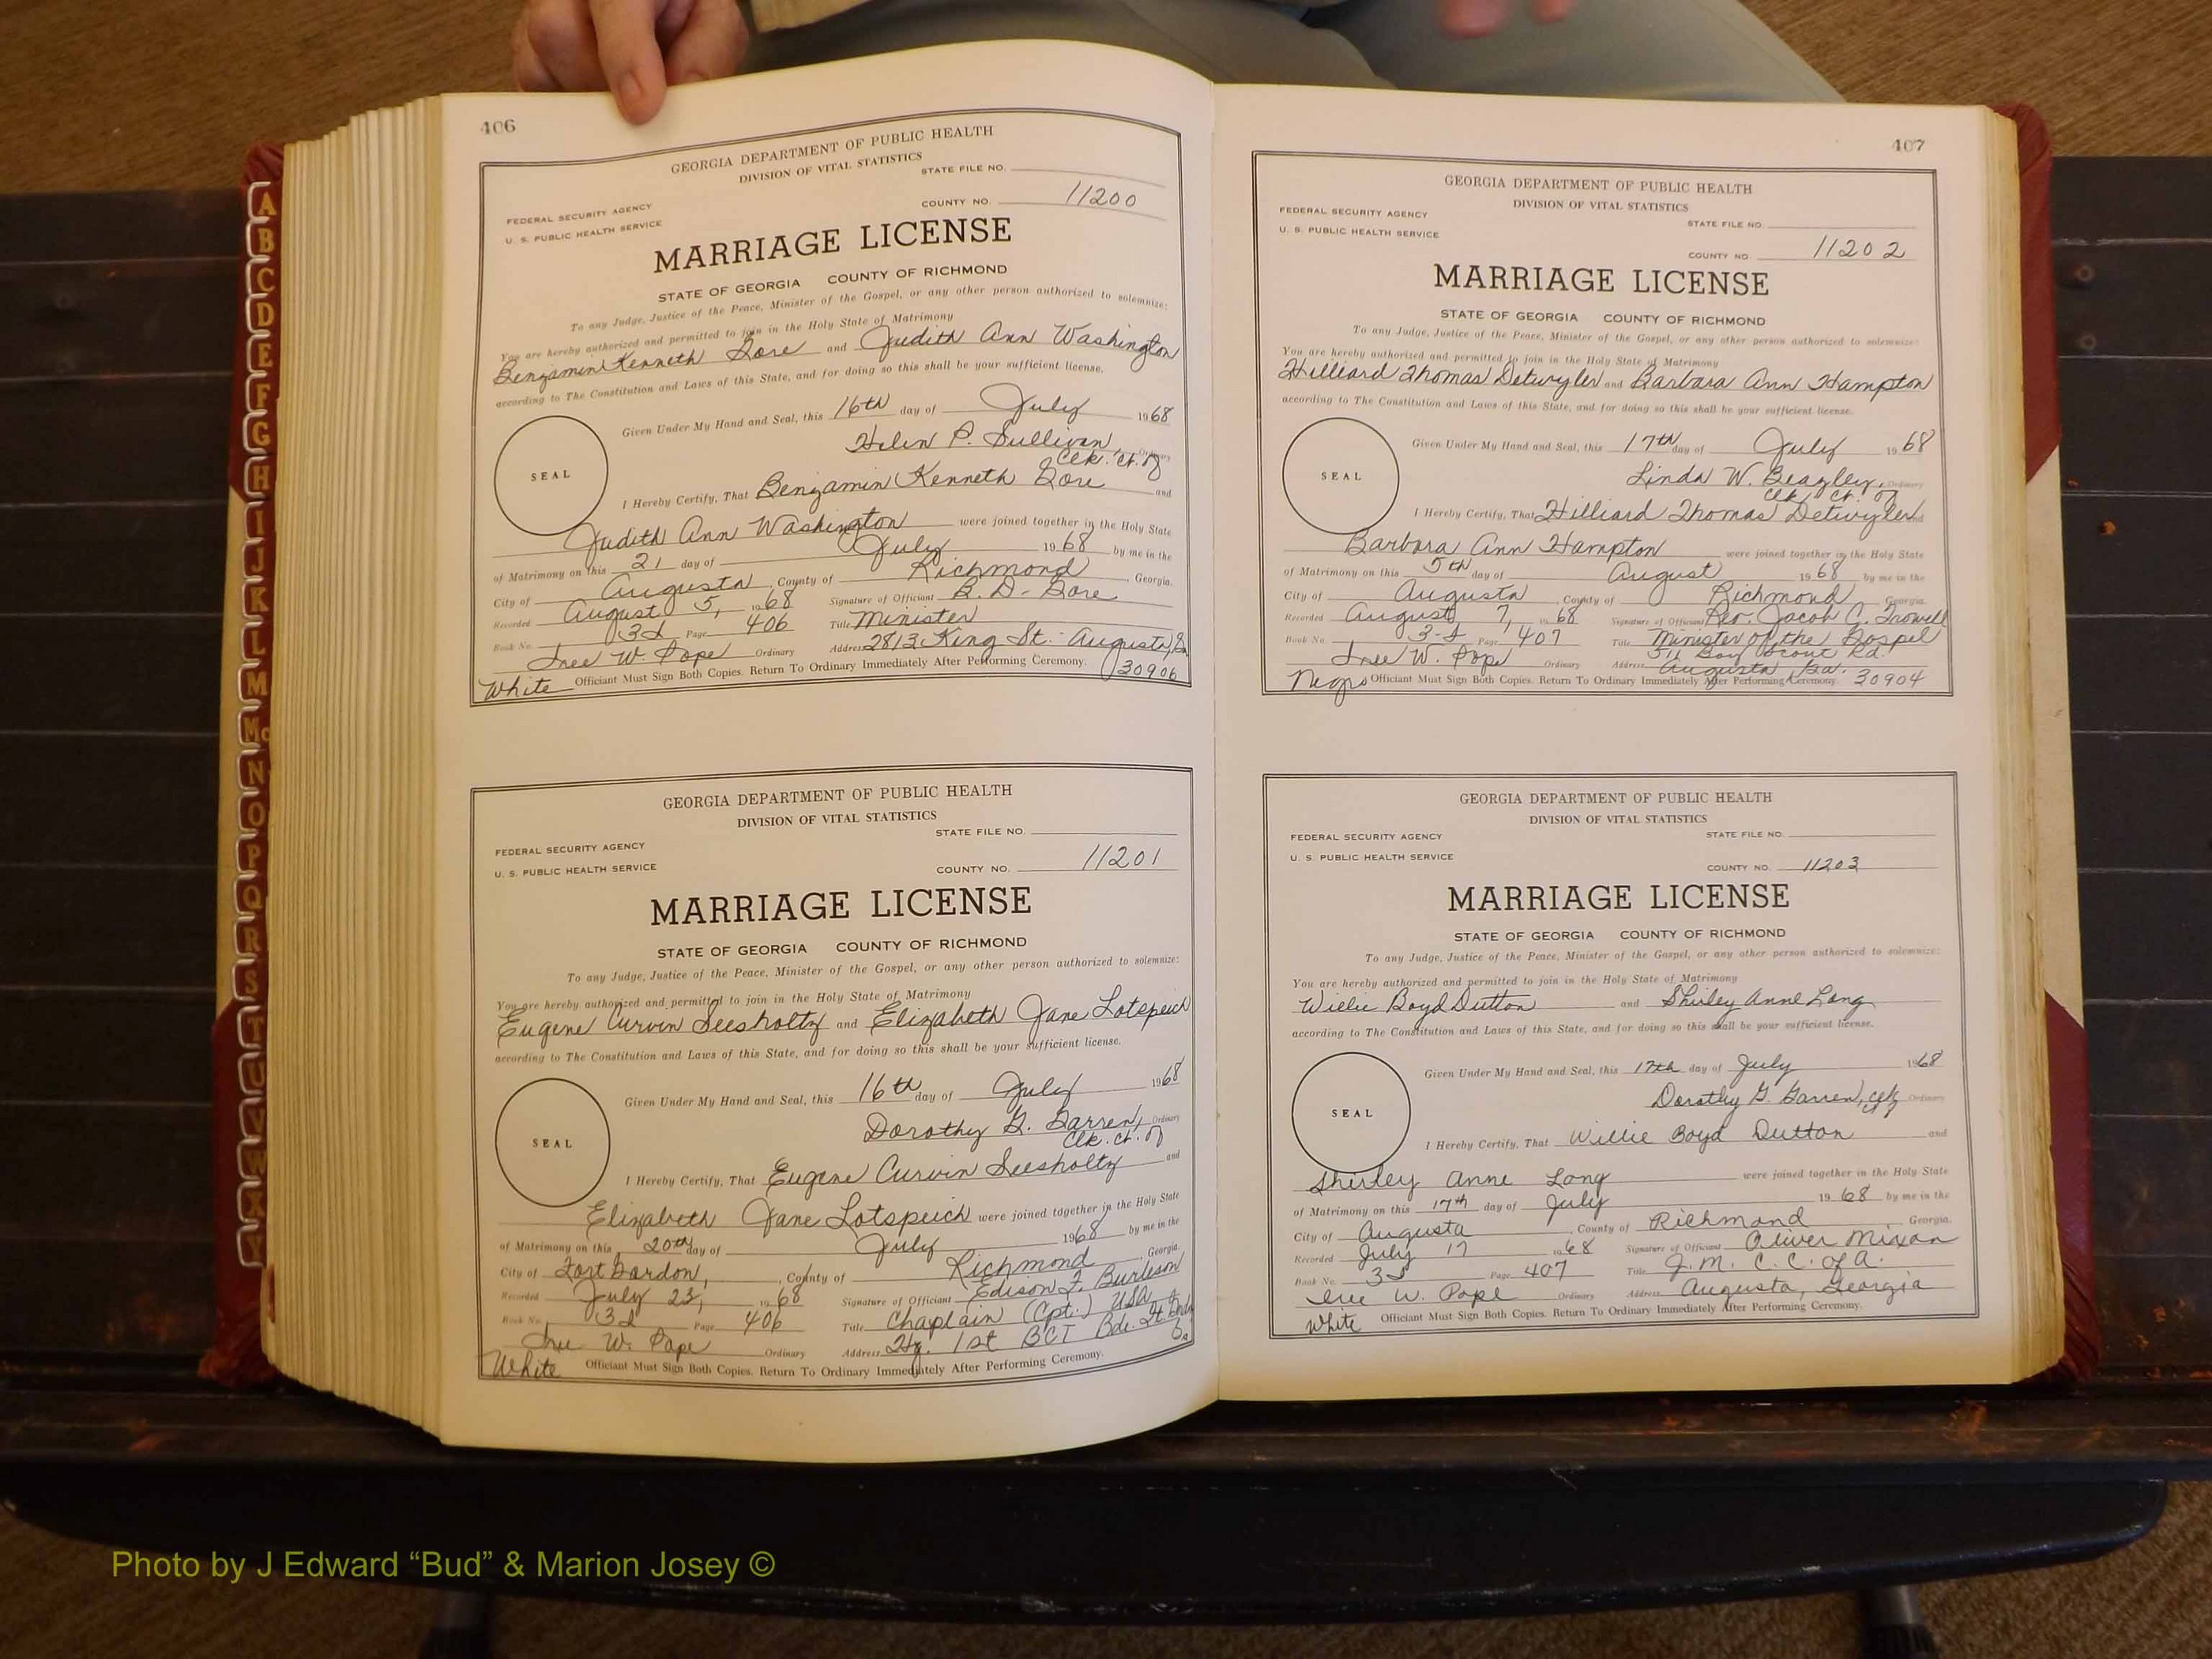 406
GEORGIA DEPARTMENT OF PUBLIC HEALTH
DIVISION OF VITAL STATISTICS
STATE FILE NO.
FEDERAL SECURITY AGENCY
U. S. PUBLIC HEALTH SERVICE
COUNTY NO. 11200
MARRIAGE LICENSE
STATE OF GEORGIA COUNTY OF RICHMOND
To any Judge, Justice of the Peace, Minister of the Gospel, or any other person authorized to solemnize:
You are hereby authorized and permitted to join in the Holy State of Matrimony
Benjamin Kenneth Gore and Judith Ann Washington
according to The Constitution and Laws of this State, and for doing so this shall be your sufficient license.
Given Under My Hand and Seal, this 16th day of July 1968
Helen P. Sullivan, Ordinary
Clk. Ct. of
SEAL
I Hereby Certify, That Benjamin Kenneth Gore and
Judith Ann Washington were joined together in the Holy State
of Matrimony on this 21 day of July 1968 by me in the
City of Augusta, County of Richmond, Georgia.
Recorded August 5, 1968 Signature of Officiant B. D. Gore
Book No. 3d Page 406 Title Minister
W. Pope Ordinary Address 2813 King St. Augusta, Ga
30906
White Officiant Must Sign Both Copies. Return To Ordinary Immediately After Performing Ceremony.
GEORGIA DEPARTMENT OF PUBLIC HEALTH
DIVISION OF VITAL STATISTICS
STATE FILE NO.
FEDERAL SECURITY AGENCY
U. S. PUBLIC HEALTH SERVICE
COUNTY NO. 11201
MARRIAGE LICENSE
STATE OF GEORGIA COUNTY OF RICHMOND
To any Judge, Justice of the Peace, Minister of the Gospel, or any other person authorized to solemnize:
You are hereby authorized and permitted to join in the Holy State of Matrimony
Eugene Curvin Seesholtz and Elizabeth Jane Lotspeich
according to The Constitution and Laws of this State, and for doing so this shall be your sufficient license.
Given Under My Hand and Seal, this 16th day of July 1968
Dorothy G. Garren, Ordinary
Clk. Ct. of
SEAL
I Hereby Certify, That Eugene Curvin Seesholtz and
Elizabeth Jane Lotspeich were joined together in the Holy State
of Matrimony on this 20th day of July 1968 by me in the
City of Fort Gordon, County of Richmond, Georgia.
Recorded July 23, 1968 Signature of Officiant Edison F. Burleson
Book No. 3d Page 406 Title Chaplain (Cpt.) USA
W. Pope Ordinary Address Hq. 1st BCT Bde. Ft Gordon
Ga
White Officiant Must Sign Both Copies. Return To Ordinary Immediately After Performing Ceremony.
407
GEORGIA DEPARTMENT OF PUBLIC HEALTH
DIVISION OF VITAL STATISTICS
FEDERAL SECURITY AGENCY
STATE FILE NO.
U. S. PUBLIC HEALTH SERVICE
COUNTY NO 11202
MARRIAGE LICENSE
STATE OF GEORGIA COUNTY OF RICHMOND
To any Judge, Justice of the Peace, Minister of the Gospel, or any other person authorized to solemnize:
You are hereby authorized and permitted to join in the Holy State of Matrimony
Hilliard Thomas Detwyler and Barbara Ann Hampton
according to The Constitution and Laws of this State, and for doing so this shall be your sufficient license.
Given Under My Hand and Seal, this 17th day of July 1968
Linda W. Beazley, Ordinary
Clk. Ct. of
SEAL
I Hereby Certify, That Hilliard Thomas Detwyler and
Barbara Ann Hampton were joined together in the Holy State
of Matrimony on this 5th day of August 1968 by me in the
City of Augusta, County of Richmond, Georgia
Recorded August 7, 1968 Signature of Officiant Rev. Jacob C. Trowell
Book No. 3-d Page 407 Title Minister of the Gospel
511 Boy Scout Rd.
W. Pope Ordinary Address Augusta, Ga. 30904
Negro Officiant Must Sign Both Copies. Return To Ordinary Immediately After Performing Ceremony.
GEORGIA DEPARTMENT OF PUBLIC HEALTH
DIVISION OF VITAL STATISTICS
FEDERAL SECURITY AGENCY
STATE FILE NO.
U. S. PUBLIC HEALTH SERVICE
COUNTY NO. 11203
MARRIAGE LICENSE
STATE OF GEORGIA COUNTY OF RICHMOND
To any Judge, Justice of the Peace, Minister of the Gospel, or any other person authorized to solemnize:
You are hereby authorized and permitted to join in the Holy State of Matrimony
Willie Boyd Dutton and Shirley Anne Long
according to The Constitution and Laws of this State, and for doing so this shall be your sufficient license.
Given Under My Hand and Seal, this 17th day of July 1968
Dorothy G. Garren, Clk Ordinary
SEAL
I Hereby Certify, That Willie Boyd Dutton and
Shirley Anne Long were joined together in the Holy State
of Matrimony on this 17th day of July 1968 by me in the
City of Augusta, County of Richmond Georgia.
Recorded July 17 1968 Signature of Officiant Oliver Mixon
Book No. 3d Page 407 Title J.M. C.C. of A.
W. Pope Ordinary Address Augusta, Georgia
White Officiant Must Sign Both Copies. Return To Ordinary Immediately After Performing Ceremony.
A
B
C
D
E
F
G
H
I
J
K
L
M
Mc
N
O
P
Q
R
S
T
U
V
W
X
Y
Photo by J Edward “Bud” & Marion Josey ©